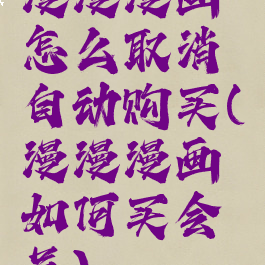 漫漫漫画
怎么取消
自动购买(
漫漫漫画
如何买会
员)